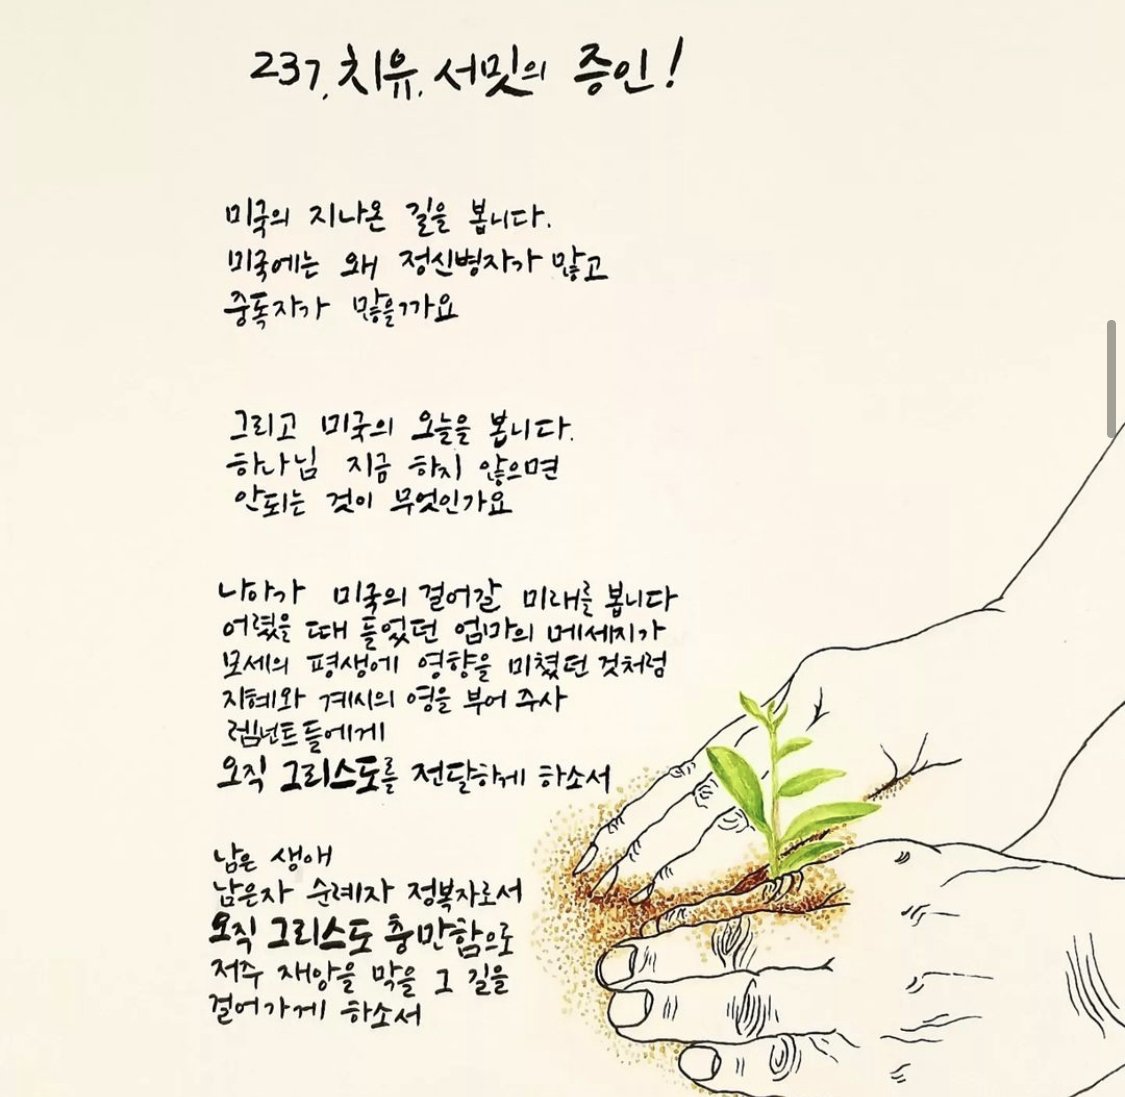 237, 치유, 서밋의 증인!
미국의 지나온 길을 봅니다.
미국에는 왜 정신병자가 많고
중독자가 많을까요
그리고 미국의 오늘을 봅니다.
하나님 지금 하지 않으면
안되는 것이 무엇인가요
나아가 미국의 걸어갈 미래를 봅니다
어렸을 때 들었던 엄마의 메세지가
모세의 평생에 영향을 미쳤던 것처럼
지혜와 계시의 영을 부어 주사
렘넌트들에게
오직 그리스도를 전달하게 하소서
남은 생애
남은자 순례자 정복자로서
오직 그리스도 충만함으로
저주 재앙을 막을 그 길을
걸어가게 하소서